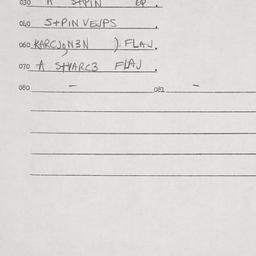 030 A S+PIN EP.
040 S+PIN VEJPS.
060 KARCJON3N ). FLAJ.
070 A S+VARC3 FLAJ.
080 - 081 -